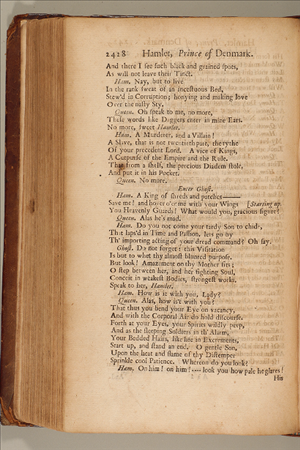 2428 Hamlet, Prince of Denmark.
And there I see such black and grained spots,
As will not leave their Tinct.
Ham. Nay, but to live
In the rank sweat of an incestuous Bed,
Stew'd in Corruption; honying and making love
Over the nasty Sty.
Queen. Oh speak to me, no more,
These words like Daggers enter in mine Ears.
No more, sweet Hamlet.
Ham. A Murderer, and a Villain!
A Slave, that is not twentieth part, the tythe
Of your precedent Lord. A vice of Kings,
A Cutpurse of the Empire and the Rule,
That from a shelf, the precious Diadem stole,
And put it in his Pocket.
Queen. No more.
Enter Ghost.
Ham. A King of shreds and patches——
Save me! and hover o'er me with your Wings [Starting up.
You Heavenly Guards! What would you, gracious figure?
Queen. Alas he's mad.
Ham. Do you not come your tardy Son to chide,
That laps'd in Time and Passion, lets go by
Th' importing acting of your dread command? Oh say.
Ghost. Do not forget: this Visitation
Is but to whet thy almost blunted purpose.
But look! Amazement on thy Mother sits;
O step between her, and her fighting Soul,
Conceit in weakest Bodies, strongest works.
Speak to her, Hamlet.
Ham. How is it with you, Lady?
Queen. Alas, how is't with you?
That thus you bend your Eye on vacancy,
And with the Corporal Air do hold discourse.
Forth at your Eyes, your Spirits wildly peep,
And as the sleeping Soldiers in th' Alarm,
Your Bedded Hairs, like life in Excrements,
Start up, and stand an end. O gentle Son,
Upon the heat and flame of thy Distemper
Sprinkle cool Patience. Whereon do you look?
Ham. On him! on him! ---- look you how pale he glares!
His